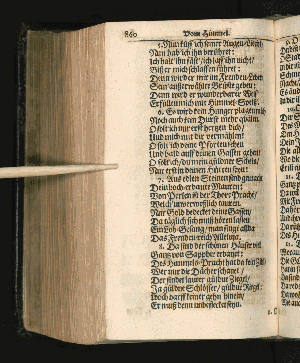 860 Vom Himmel.
5. Nun küß ich seiner Augen Licht/
Nun hab ich ihn berühret:
Ich halt ihn fäst/ ich laß ihn nicht/
Biß er mich schlaffen führet:
Dein werd er mir im Freuden-Leben
Sein Brüste geben:
Dann wird er wunderbarer Weiß
Erfüllen mich mit Himmel-Speiß.
6. Es wird kein Hunger plagen mich
Noch auch kein Durst mehr quälen.
O solt ich nur erst hertzen dich/
Und mich mit dir vermählen!
O solt ich deine Pforten sehn
Und bald auff deinen Gassen gehn!
O solt ich/ du mein güldner Schein/
Nur erst in deinen Hütten seyn!
7. Aus edlen Steinen sind gemacht
Dein hoch erbaute Mauren:
Von Perlen ist der Thore Pracht/
Welch unverweßlich tauren.
Nur Gold bedecket deine Gassen/
Da täglich sich muß hören lassen
Ein Lob-Gesang/ man singt allda
Das Freuden-reich Alleluja.
8. Da sind der schönen Häuser viel
Gantz von Sapphir erbauet:
Des Himmels Pracht hat da kein Ziel/
Wer nur die Dächer schauet/
Der findet lauter güldne Ziegel/
Ja güldne Schlösser/ güldne Riegel:
Doch darff keiner gehn hinein/
Er muß denn unbeflecket seyn.